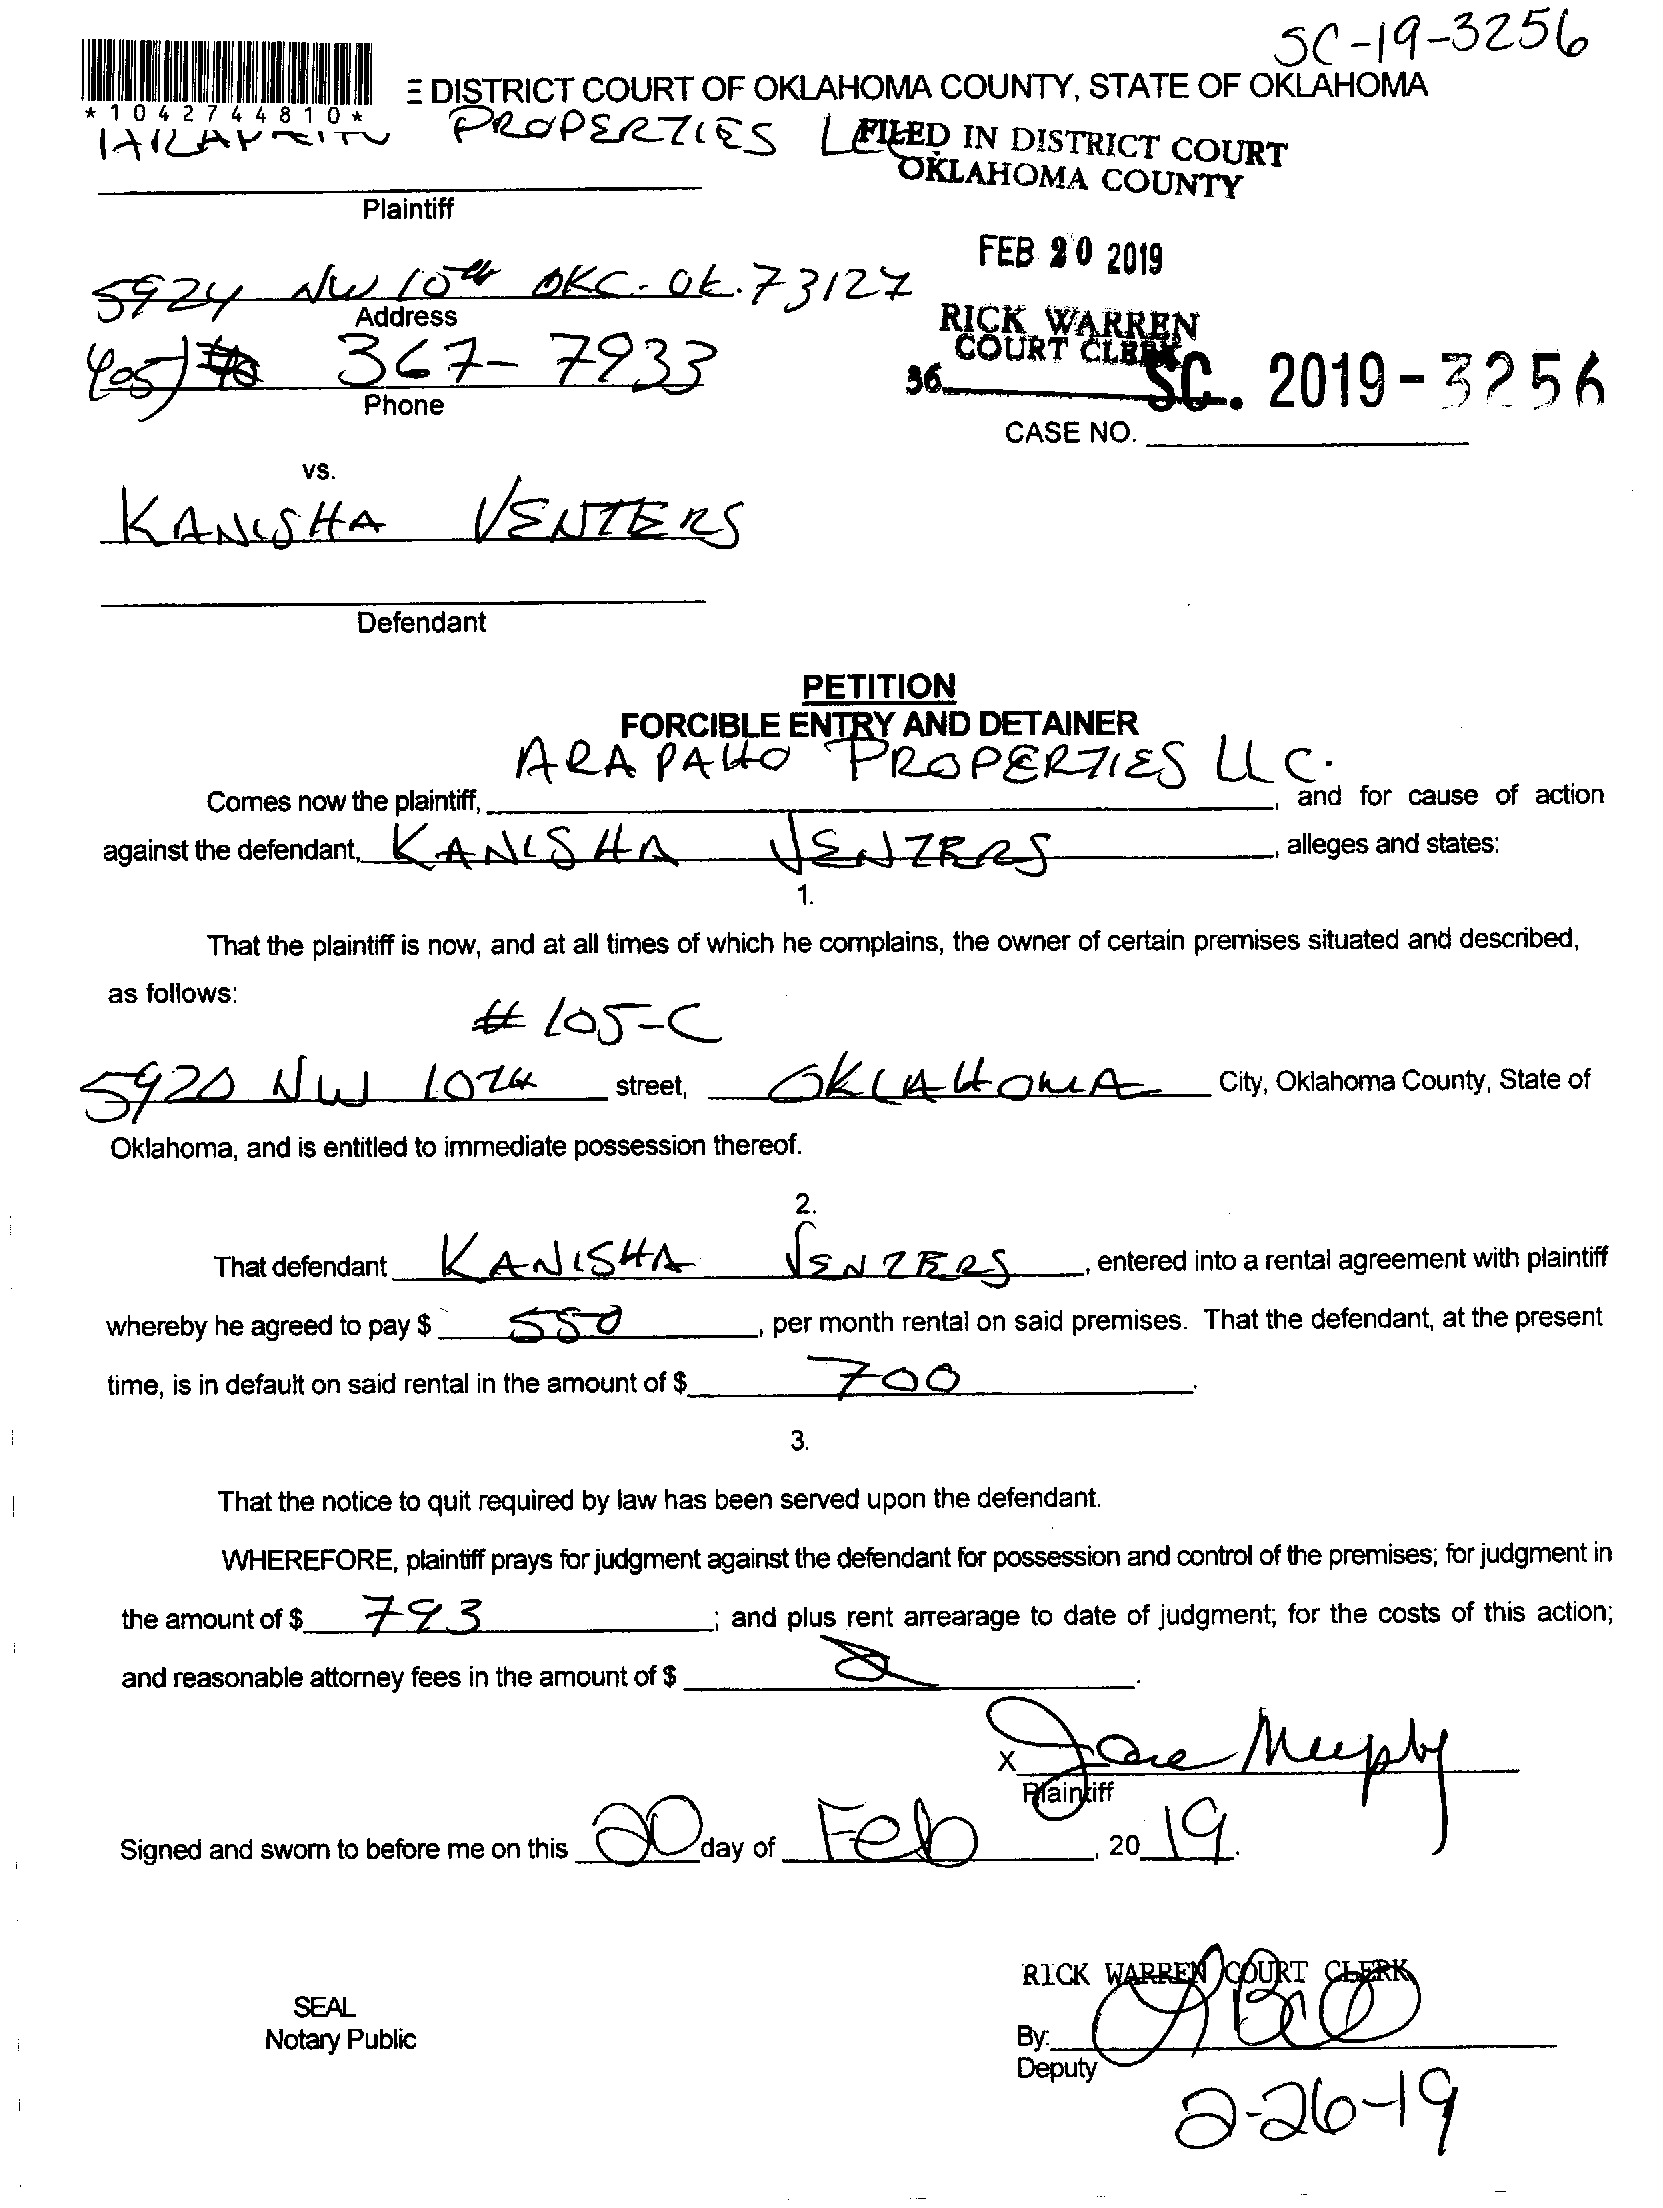 SC-19-3256
DISTRICT COURT OF OKLAHOMA COUNTY, STATE OF OKLAHOMA
*1042744810*
PROPERTIES
FILED IN DISTRICT COURT
OKLAHOMA COUNTY
Plaintiff
FEB 20 2019
5924 NW 10th OKC. OK. 73127
Address
RICK WARREN
COURT CLERK
405) 367-7933
Phone
36
SC. 2019-3256
CASE NO.
vs.
KANISHA VENTERS
Defendant
PETITION
FORCIBLE ENTRY AND DETAINER
Comes now the plaintiff, ARAPAHO PROPERTIES LLC. , and for cause of action
against the defendant, KANISHA VENTERS , alleges and states:
1.
That the plaintiff is now, and at all times of which he complains, the owner of certain premises situated and described,
as follows:
# 105-C
5920 NW 10th street, OKLAHOMA City, Oklahoma County, State of
Oklahoma, and is entitled to immediate possession thereof.
2.
That defendant KANISHA VENTERS , entered into a rental agreement with plaintiff
whereby he agreed to pay $ 550 , per month rental on said premises. That the defendant, at the present
time, is in default on said rental in the amount of $ 700 .
3.
That the notice to quit required by law has been served upon the defendant.
WHEREFORE, plaintiff prays for judgment against the defendant for possession and control of the premises; for judgment in
the amount of $ 793 ; and plus rent arrearage to date of judgment; for the costs of this action;
and reasonable attorney fees in the amount of $ .
X Jane Murphy
Plaintiff
Signed and sworn to before me on this 20 day of Feb , 20 19.
RICK WARREN COURT CLERK
SEAL
Notary Public
By:
Deputy
2-26-19